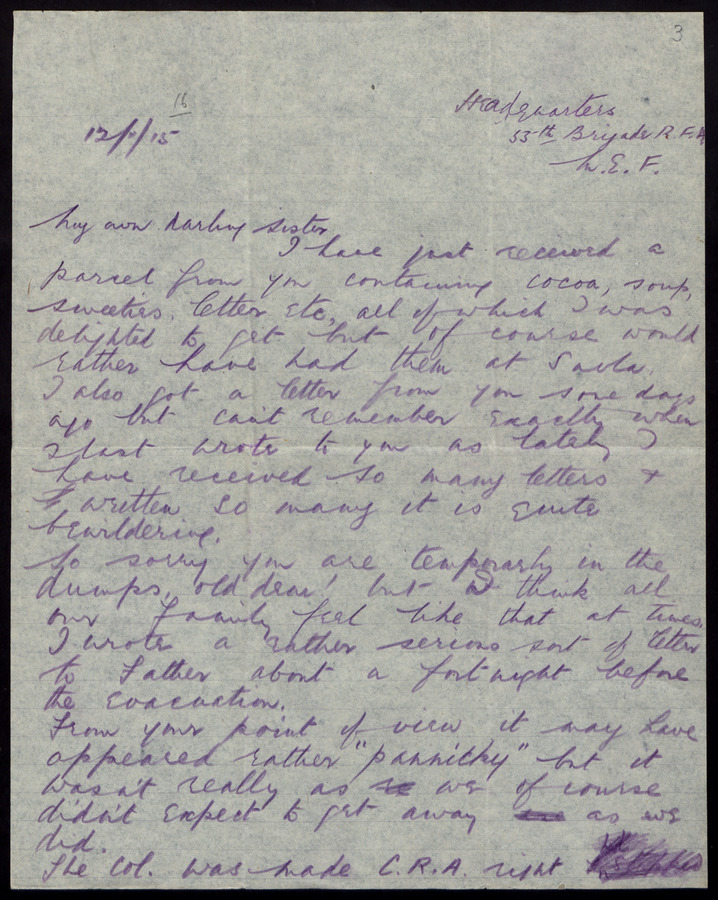 3
Headquarters
16
12/1/15
53rd Brigade R.F.A
M.E.F.
My own darling sister
I have just received a
parcel from you containing cocoa, soup,
sweeties, letter etc, all of which I was
delighted to get but of course would
rather have had them at Suvla.
I also got a letter from you some days
ago but can't remember exactly when
I last wrote to you as lately I
have received so many letters +
written so many it is quite
bewildering.
So sorry you are temporarily in the
dumps, old dear! but I think all
our family feel like that at times.
I wrote a rather serious sort of letter
to Father about a fortnight before
the evacuation.
From your point of view it may have
appeared rather "pannicky" but it
wasn't really as we of course
didn't expect to get away as we
did.
The Col. was made C.R.A. right